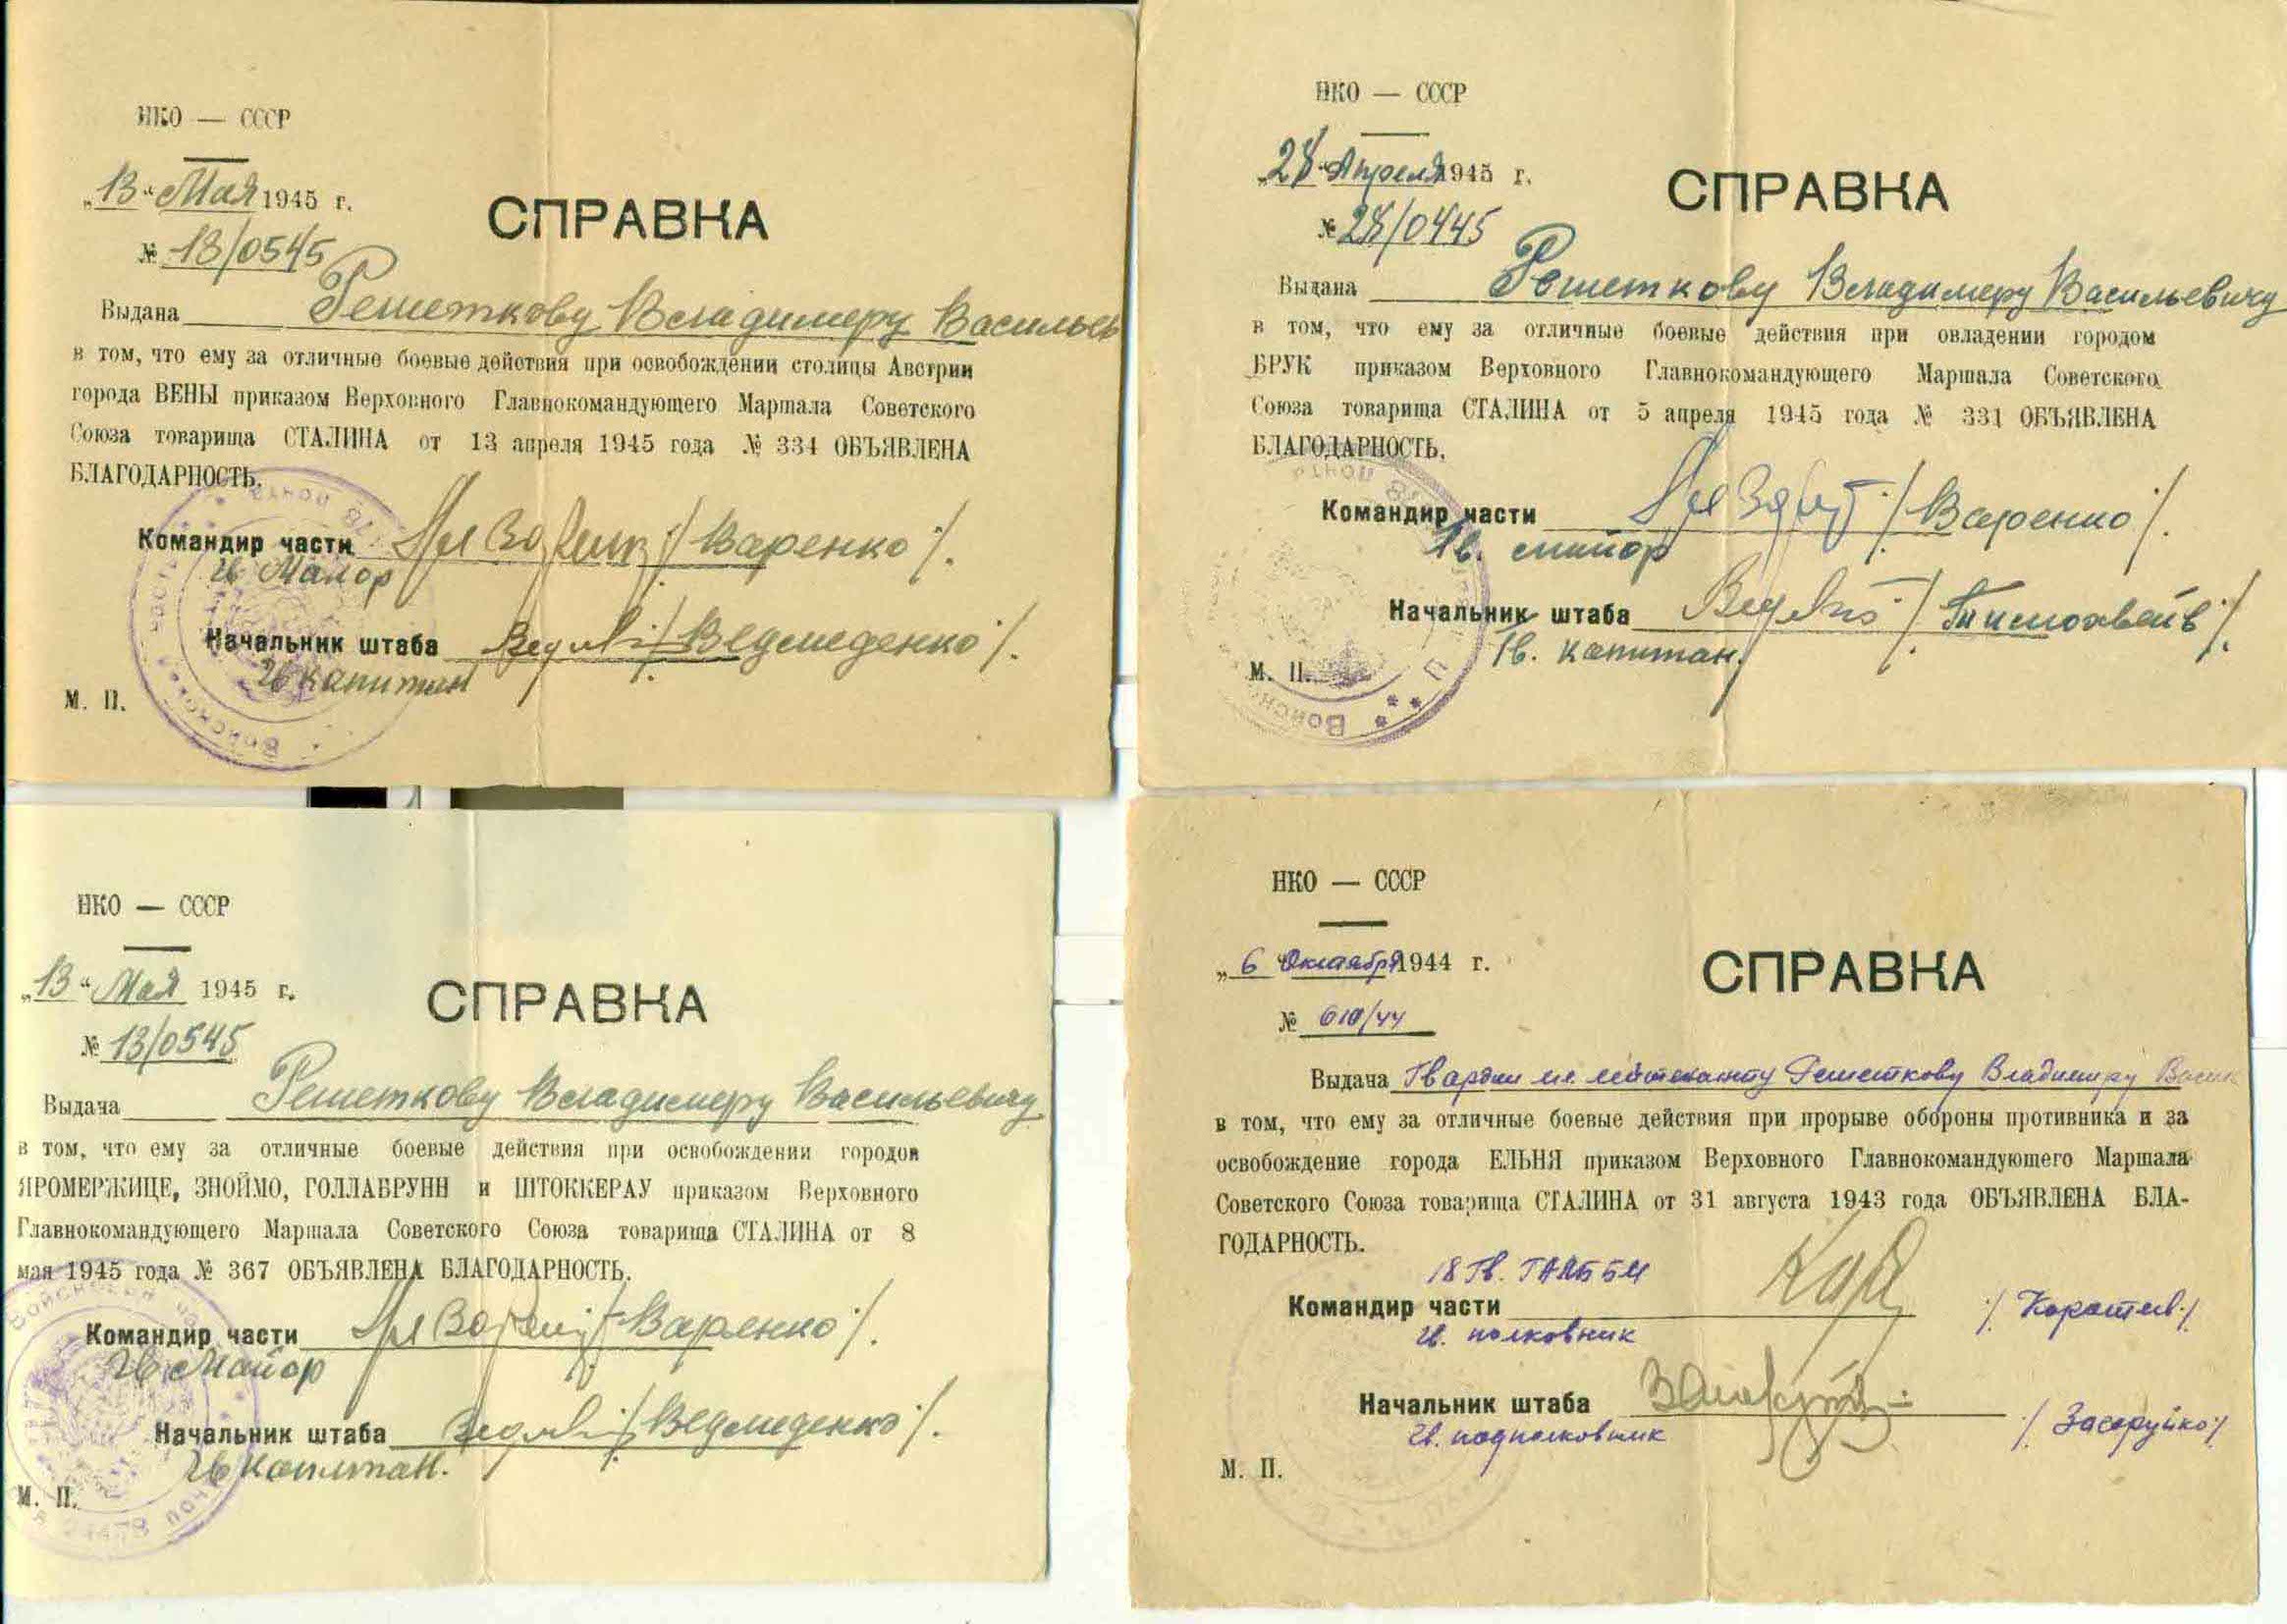 НКО — СССР
„13“ Мая 1945 г.
№ 13/0545
СПРАВКА
Выдана Решеткову Владимеру Васильев
в том, что ему за отличные боевые действия при освобождении столицы Австрии
города ВЕНЫ приказом Верховного Главнокомандующего Маршала Советского
Союза товарища СТАЛИНА от 13 апреля 1945 года № 334 ОБЪЯВЛЕНА
БЛАГОДАРНОСТЬ.
Командир части /Варенко/.
Гв Маиор
Начальник штаба /Ведмеденко/.
Гв капитан
М. П.
НКО — СССР
„28“ Апреля 1945 г.
№ 28/0445
СПРАВКА
Выдана Решеткову Владимеру Васильевичу
в том, что ему за отличные боевые действия при овладении городом
БРУК приказом Верховного Главнокомандующего Маршала Советского
Союза товарища СТАЛИНА от 5 апреля 1945 года № 331 ОБЪЯВЛЕНА
БЛАГОДАРНОСТЬ.
Командир части /Варенко/.
Гв. майор
Начальник штаба
Гв. капитан.
М. П.
НКО — СССР
„13“ Мая 1945 г.
№ 13/0545
СПРАВКА
Выдача Решеткову Владимеру Васильевичу
в том, что ему за отличные боевые действия при освобождении городов
ЯРОМЕРЖИЦЕ, ЗНОЙМО, ГОЛЛАБРУНН и ШТОККЕРАУ приказом Верховного
Главнокомандующего Маршала Советского Союза товарища СТАЛИНА от 8
мая 1945 года № 367 ОБЪЯВЛЕНА БЛАГОДАРНОСТЬ.
Командир части /Варенко/.
Гв Майор
Начальник штаба /Ведмеденко/.
Гв Капитан.
М. П.
НКО — СССР
„6 Октября 1944 г.
№ 610/44
СПРАВКА
Выдана Гвардии мл. лейтенанту Решеткову Владимиру Васил
в том, что ему за отличные боевые действия при прорыве обороны противника и за
освобождение города ЕЛЬНЯ приказом Верховного Главнокомандующего Маршала
Советского Союза товарища СТАЛИНА от 31 августа 1943 года ОБЪЯВЛЕНА БЛА-
ГОДАРНОСТЬ.
18 Гв. ГАПББМ
Командир части
Гв. полковник
Начальник штаба /Засоруйко/
Гв. подполковник
М. П.